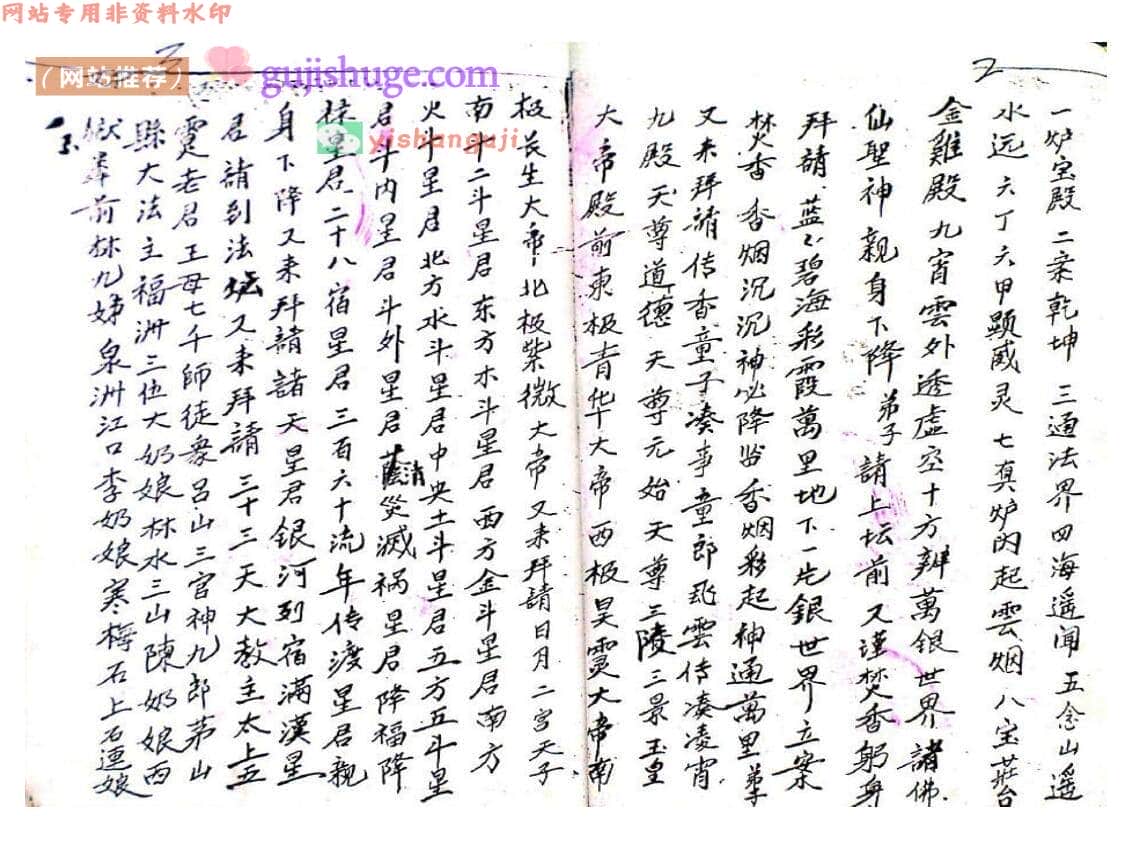 网站专用非资料水印
（网站推荐）
gujishuge.com
yishanguji
2
一炉宝殿 二亲乾坤 三通法界四海遥闻 五念山遥
水远 六丁六甲顕威灵 七真炉内起雲烟 八宝莊台
金雞殿 九宵雲外透虚空 十方辨萬银世界 諸佛
仙聖神親身下降 弟子請上坛前 又谨焚香躬身
拜請 蓝〻碧海彩霞萬里地下一片銀世界立案
焚香 香烟沉沉神必降出香烟彩起神通萬里弟子
又来拜請传香童子凑事童郎飛雲传凑凌宵
九殿天尊道德天尊元始天尊三陵三景玉皇
大帝殿前東极青华大帝西极昊靈大帝南
3
极長生大帝北极紫微大帝又来拜請日月二宫天子
南斗二斗星君东方木斗星君西方金斗星君南方
火斗星君北方水斗星君中央土斗星君五方五斗星
君斗内星君斗外星君 消災滅祸星君降福降
禄星君二十八宿星君三百六十流年传渡星君親
身下降又来拜請諸天星君银河列宿满漢星
君請到法坛又来拜請三十三天大教主太上五
靈老君王母七千師徒衆吕山三宫神九郎茅山
縣大法主福洲三位大奶娘林水三山陳奶娘西
嶽 前林九娣泉洲江口李奶娘寒梅石上石連娘